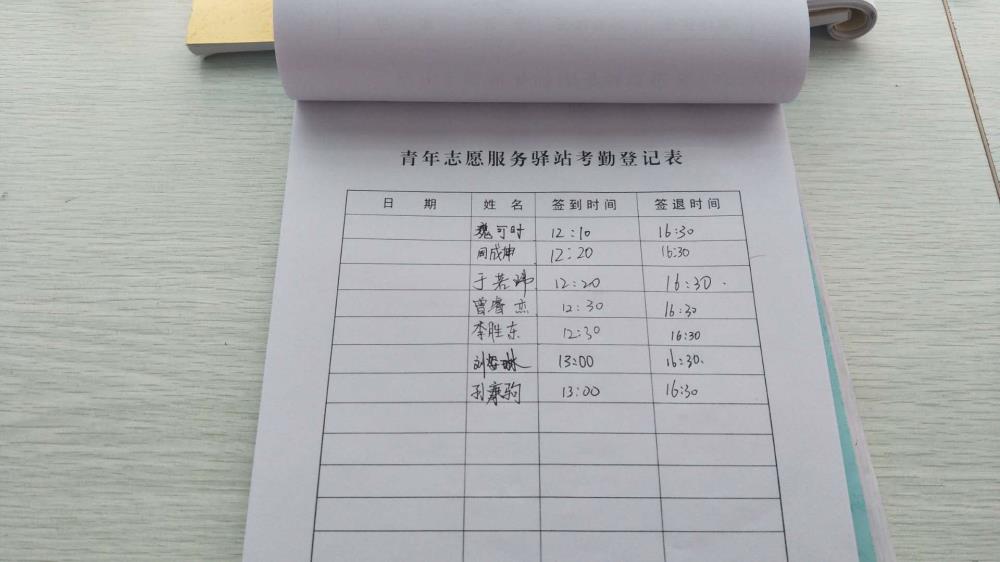 青年志愿服务驿站考勤登记表
日 期 姓 名 签到时间 签退时间
魏可时 12:10 16:30
闫成坤 12:20 16:30
于若玮 12:20 16:30
曾睿杰 12:30 16:30
李胜东 12:30 16:30
刘 13:00 16:30
孙康驹 13:00 16:30